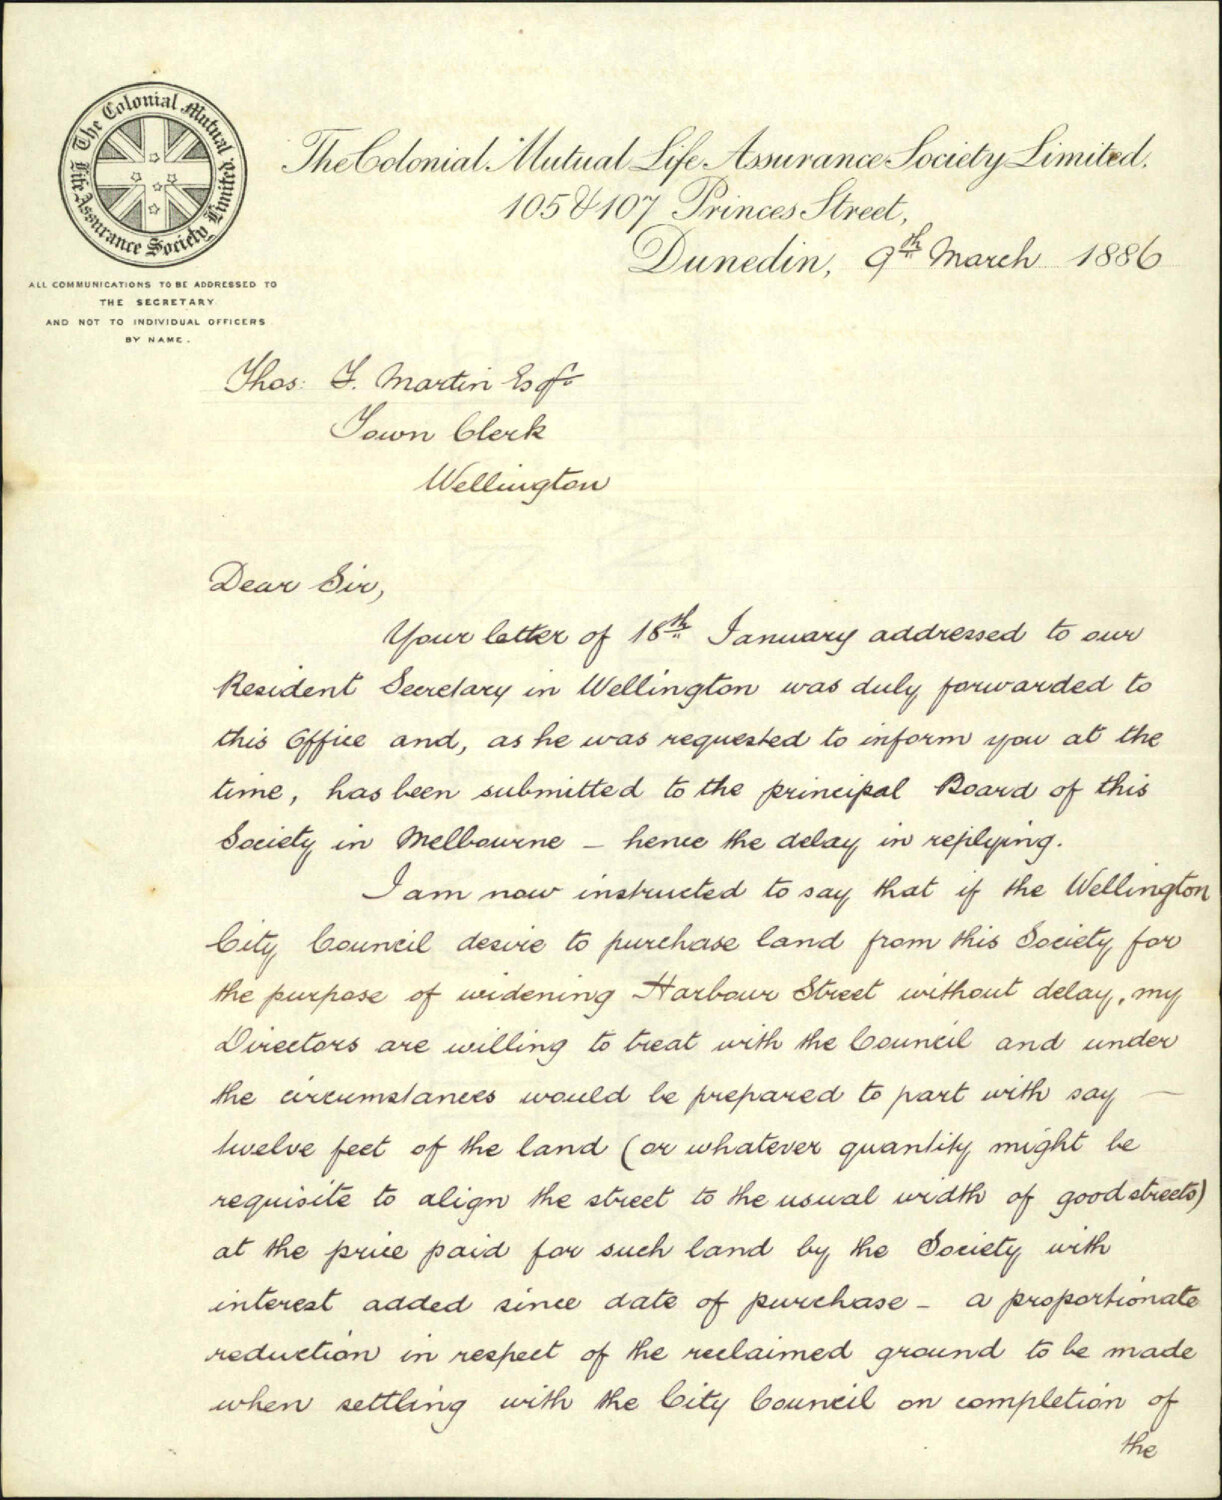 The Colonial Mutual Life Assurance Society Limited.
The Colonial Mutual Life Assurance Society Limited.
105 & 107 Princes Street,
Dunedin, 9th March 1886
ALL COMMUNICATIONS TO BE ADDRESSED TO
THE SECRETARY
AND NOT TO INDIVIDUAL OFFICERS
BY NAME.
Thos: F. Martin Esqr
Town Clerk
Wellington
Dear Sir,
Your letter of 18th January addressed to our
Resident Secretary in Wellington was duly forwarded to
this Office and, as he was requested to inform you at the
time, has been submitted to the principal Board of this
Society in Melbourne – hence the delay in replying.
I am now instructed to say that if the Wellington
City Council desire to purchase land from this Society for
the purpose of widening Harbour Street without delay, my
Directors are willing to treat with the Council and under
the circumstances would be prepared to part with say —
twelve feet of the land (or whatever quantity might be
requisite to align the street to the usual width of good streets)
at the price paid for such land by the Society with
interest added since date of purchase – a proportionate
reduction in respect of the reclaimed ground to be made
when settling with the City Council on completion of
the